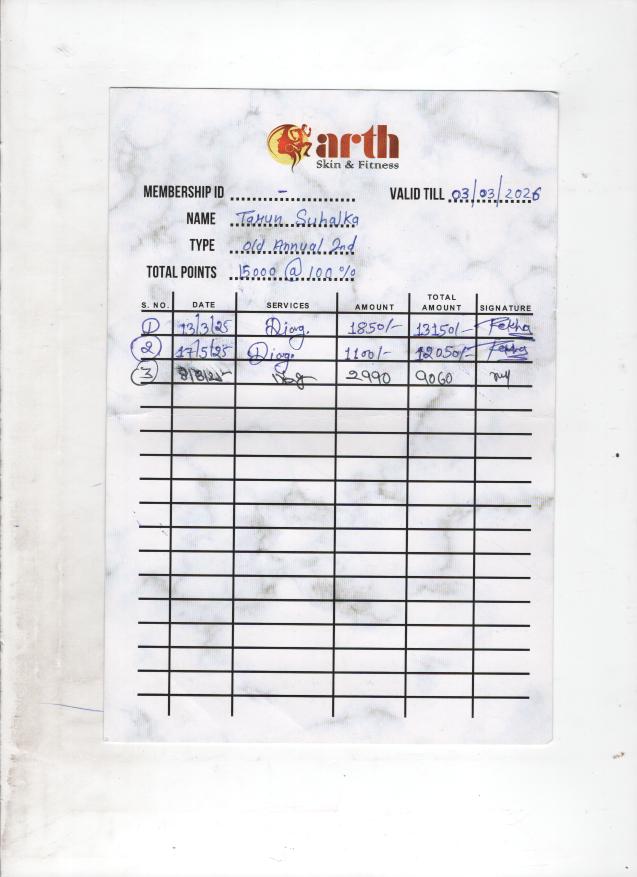 arth
Skin & Fitness
MEMBERSHIP ID - VALID TILL 03/03/2026
NAME Tarun Suhalka
TYPE Old Annual 2nd
TOTAL POINTS 15000 @ 100 %
S. NO. DATE SERVICES AMOUNT TOTAL AMOUNT SIGNATURE
1 13/3/25 Diag. 1850/- 13150/- Rekha
2 17/5/25 Diag. 1100/- 12050/- Rekha
3 2990 9060